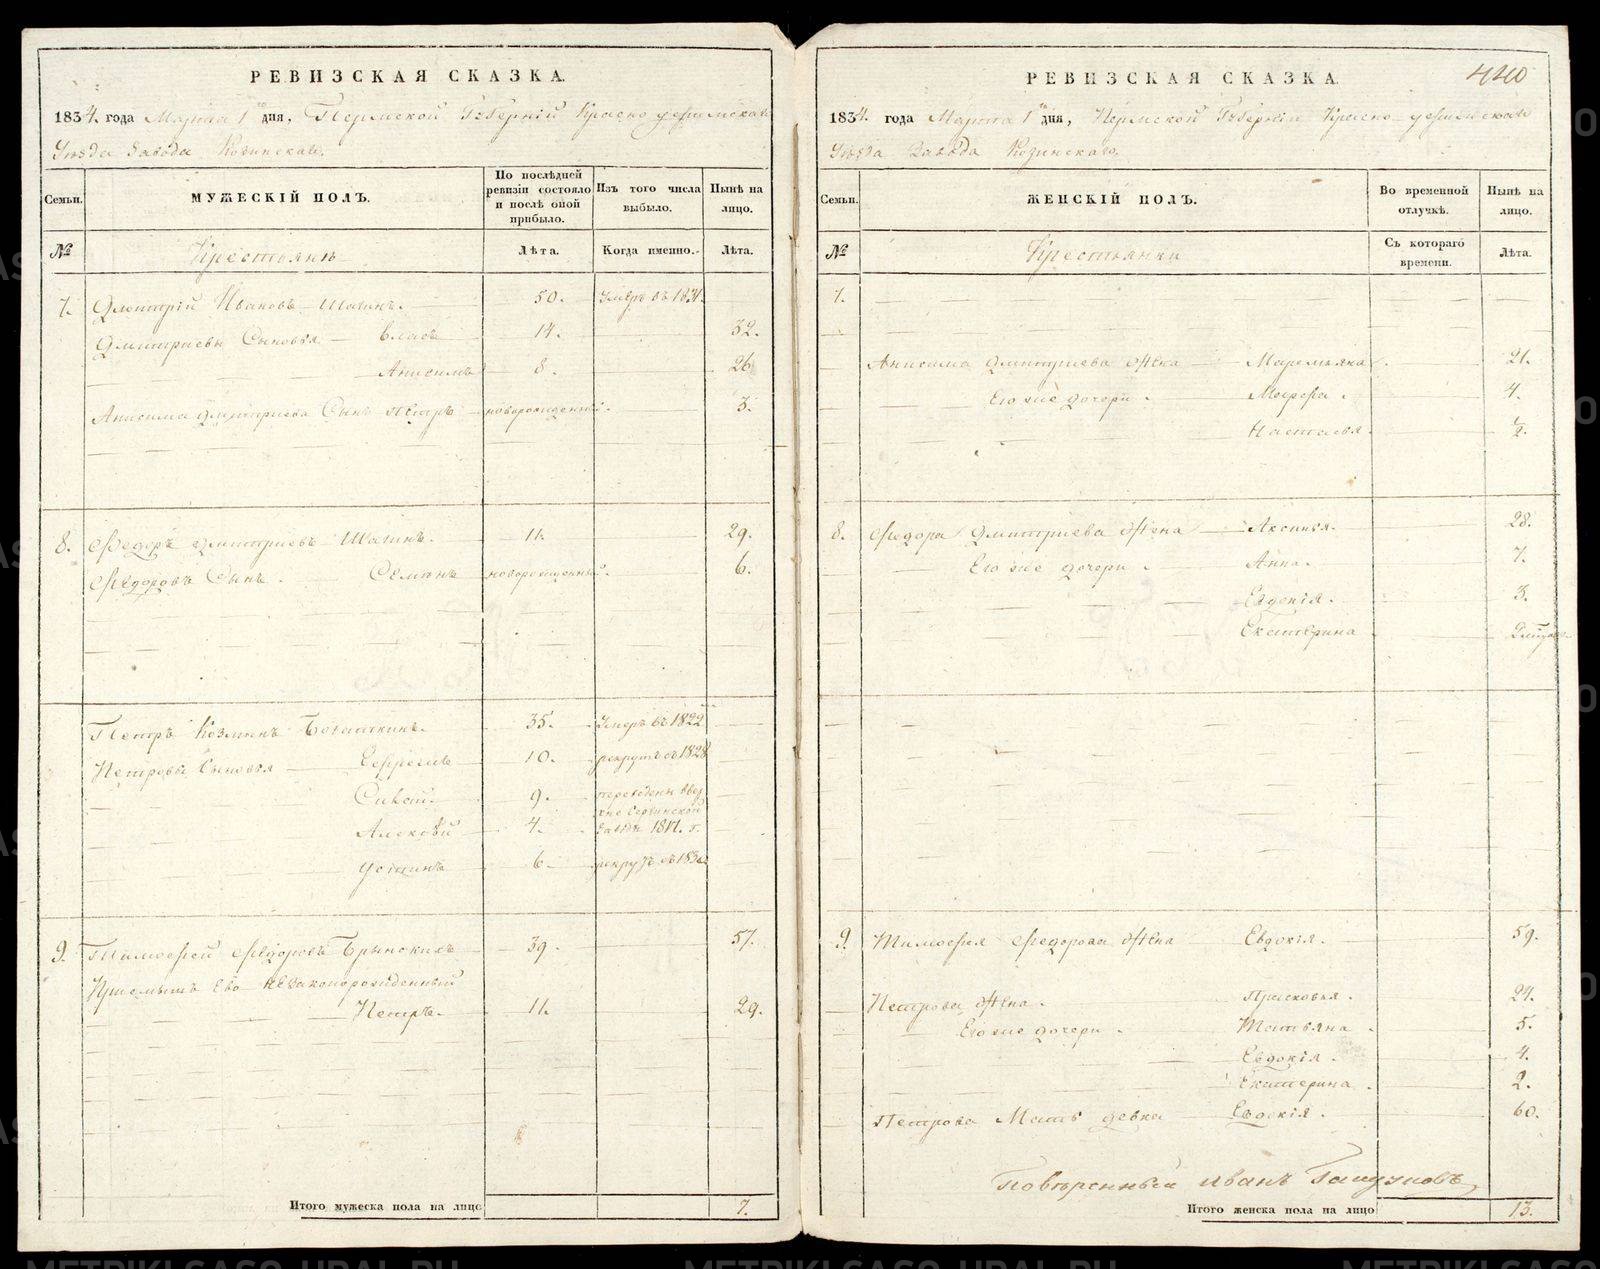 РЕВИЗСКАЯ СКАЗКА.
1834. года Марта 1го дня, Пермской Губерніи Красноуфимскаго
Уѣзда Завода Козинскаго.
Семьи.
МУЖЕСКІЙ ПОЛЪ.
По послѣдней ревизіи состояло и послѣ оной прибыло.
Изъ того числа выбыло.
Нынѣ на лицо.
№
Крестьяне
Лѣта.
Когда именно.
Лѣта.
7. Дмитрій Ивановъ Шагинъ. 50. Умеръ въ 1831.
Дмитріевы Сыновья Власъ 14. 32.
Анисимъ 8. 26
Анисима Дмитриева Сынъ Петръ новорожденный. 3.
8. Федоръ Дмитриевъ Шагинъ. 11. 29.
Федоровъ Сынъ. Семенъ новорожденный. 6.
Петръ Козминъ 35. Умеръ въ 1822
Петровы Сыновья Ефремъ 10. рекрутъ съ 1828
9. переведены
4. заводъ г.
Устинъ 6 рекрутъ съ
9. Тимофей Федоровъ Брынскихъ 39. 57.
Приемышъ Ево незаконорожденный
Петръ. 11. 29.
Итого мужеска пола на лицо 7.
РЕВИЗСКАЯ СКАЗКА.
440
1834. года Марта 1го дня, Пермской Губерніи Красноуфимскаго
Уѣзда Завода Козинскаго.
Семьи.
ЖЕНСКІЙ ПОЛЪ.
Во временной отлучкѣ.
Нынѣ на лицо.
№
Крестьянки
Съ котораго времени.
Лѣта.
7.
Анисима Дмитриева Жена Маремьяна 21.
Его же дочери Марфа. 4.
Настасья. ½.
8. Федора Дмитриева Жена Аксинья. 28.
Его же дочери Анна. 7.
Евдокія. 3.
Екатерина
9. Тимофея Федорова Жена Евдокія. 59.
Петрова Жена. Прасковья. 24.
Его же дочери Татьяна 5.
Евдокія. 4.
Екатерина. 2.
Петрова Мать девка Евдокія. 60.
Повѣренный Иванъ
Итого женска пола на лицо 13.
METRIKI.GASO-URAL.RU
METRIKI.GASO-URAL.RU